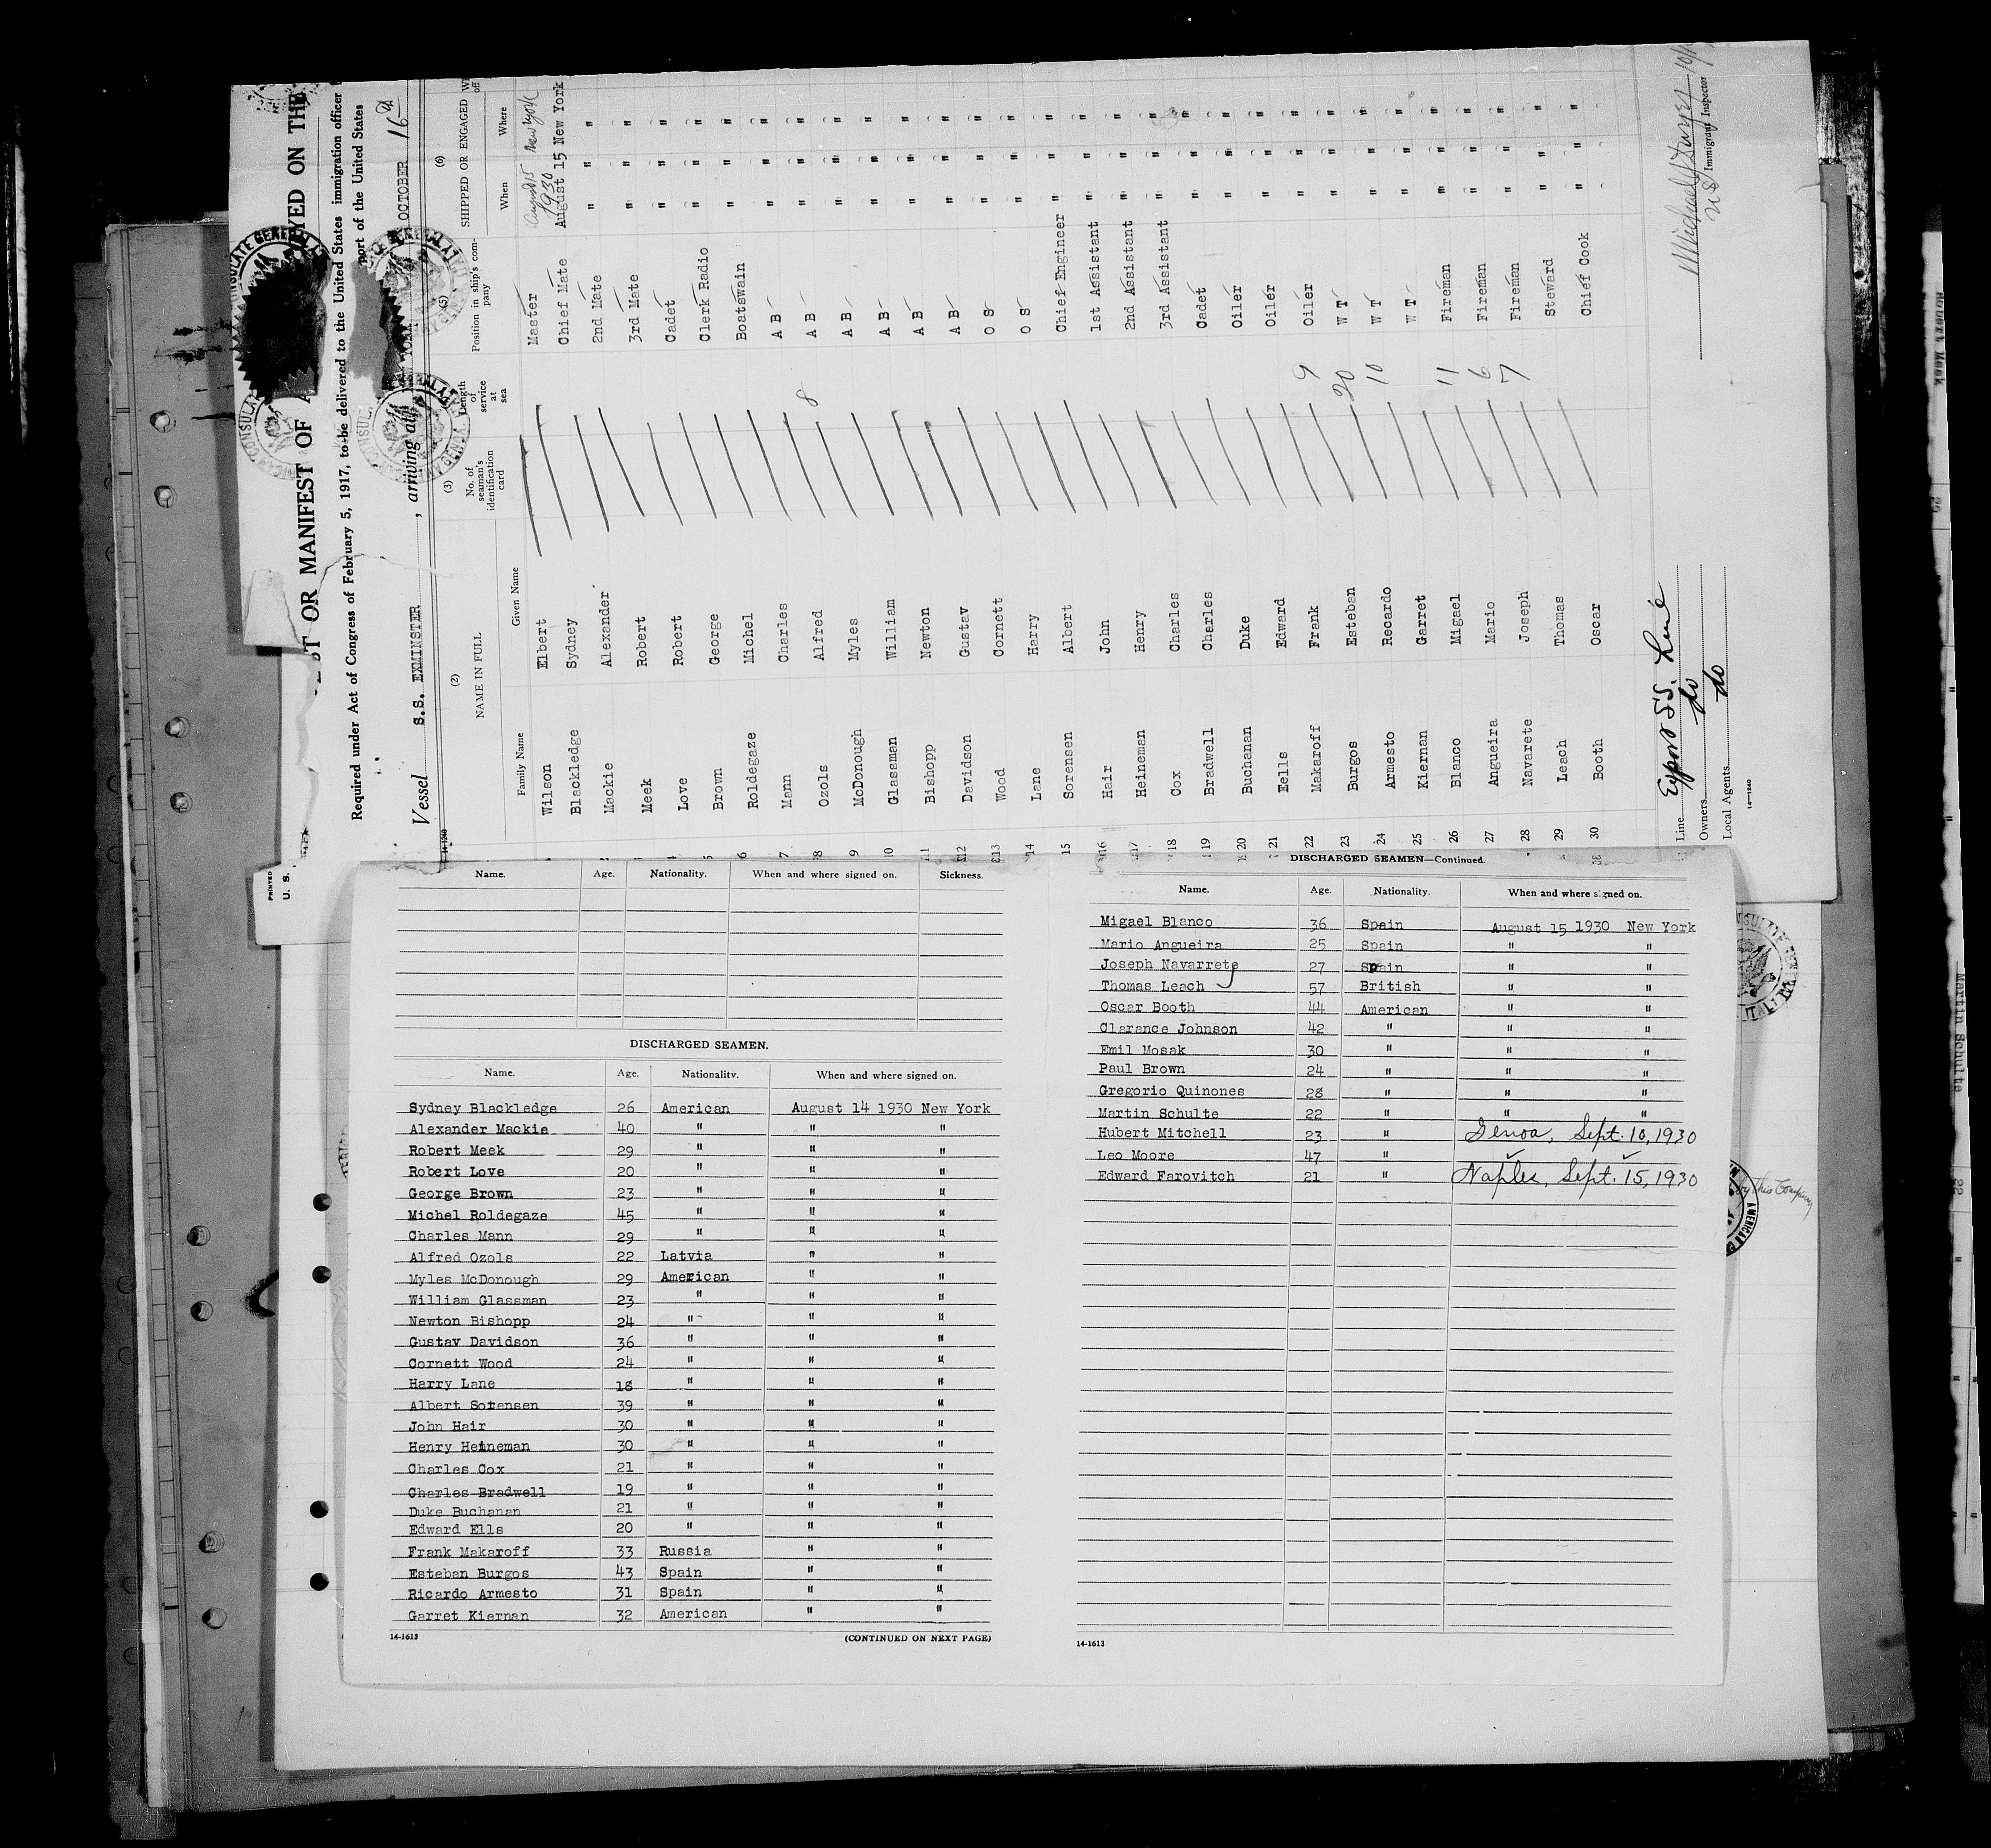 LIST OR MANIFEST OF A YED ON THE
Required under Act of Congress of February 5, 1917, to be delivered to the United States immigration officer
port of the United States
Vessel S.S. EXMINSTER, arriving at YORK OCTOBER 16
(2) (3) (5) (6)
NAME IN FULL No. of seaman's identification card Length of service at sea Position in ship's company SHIPPED OR ENGAGED
Family Name Given Name When Where
Wilson Elbert Master August 15 1930 New York
2 Blackledge Sydney Chief Mate August 15 New York
Mackie Alexander 2nd Mate " " "
Meek Robert 3rd Mate " " "
4 Love Robert Cadet " " "
5 Brown George Clerk Radio " " "
6 Roldegaze Michel Boatswain " " "
7 Mann Charles A B " " "
8 Ozols Alfred 8 A B " " "
9 McDonough Myles A B " " "
10 Glassman William A B " " "
11 Bishopp Newton A B " " "
12 Davidson Gustav A B " " "
13 Wood Cornett O S " " "
14 Lane Harry O S " " "
15 Sorensen Albert Chief Engineer " " "
16 Hair John 1st Assistant " " "
17 Heineman Henry 2nd Assistant " " "
18 Cox Charles 3rd Assistant " " "
19 Bradwell Charles Cadet " " "
20 Buchanan Duke Oiler " " "
21 Eells Edward Oiler " " "
22 Makaroff Frank 9 Oiler " " "
23 Burgos Esteban 20 W T " " "
24 Armesto Recardo 10 W T " " "
25 Kiernan Garret W T " " "
26 Blanco Migael 11 Fireman " " "
27 Angueira Mario 6 Fireman " " "
28 Navarete Joseph 7 Fireman " " "
29 Leach Thomas Steward " " "
30 Booth Oscar Chief Cook " " "
Line Export S.S. Line
Owners do
Local Agents do
Immigrant Inspector
14-1240
Name. Age. Nationality. When and where signed on. Sickness.
DISCHARGED SEAMEN.
Name. Age. Nationality. When and where signed on.
Sydney Blackledge 26 American August 14 1930 New York
Alexander Mackie 40 " " "
Robert Meek 29 " " "
Robert Love 20 " " "
George Brown 23 " " "
Michel Roldegaze 45 " " "
Charles Mann 29 " " "
Alfred Ozols 22 Latvia " "
Myles McDonough 29 American " "
William Glassman 23 " " "
Newton Bishopp 24 " " "
Gustav Davidson 36 " " "
Cornett Wood 24 " " "
Harry Lane 18 " " "
Albert Sotensen 39 " " "
John Hair 30 " " "
Henry Heineman 30 " " "
Charles Cox 21 " " "
Charles Bradwell 19 " " "
Duke Buchanan 21 " " "
Edward Ells 20 " " "
Frank Makaroff 33 Russia " "
Esteban Burgos 43 Spain " "
Ricardo Armesto 31 Spain " "
Garret Kiernan 32 American " "
14-1613 (CONTINUED ON NEXT PAGE)
DISCHARGED SEAMEN—Continued.
Name. Age. Nationality. When and where signed on.
Migael Blanco 36 Spain August 15 1930 New York
Mario Angueira 25 Spain " "
Joseph Navarrete 27 Spain " "
Thomas Leach 57 British " "
Oscar Booth 44 American " "
Clarance Johnson 42 " " "
Emil Mosak 30 " " "
Paul Brown 24 " " "
Gregorio Quinones 28 " " "
Martin Schulte 22 " " "
Hubert Mitchell 23 " Genoa, Sept. 10, 1930
Leo Moore 47 " ✓ ✓
Edward Farovitch 21 " Naples, Sept. 15, 1930
14-1613
by this Company
Robert Meek
Martin Schulte 22